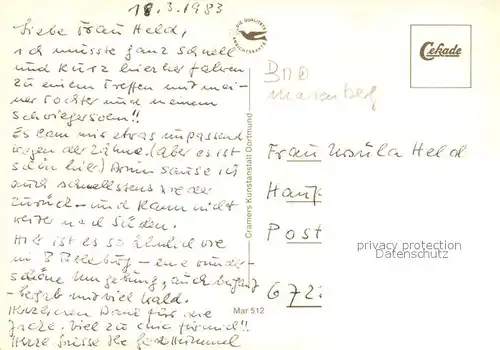 18.3.1983
Liebe Frau Held,
ich musste ganz schnell
und kurz hierher fahren
zu einem Treffen mit mei-
ner Tochter und meinem
Schwiegersohn!!
Es kam mir etwas unpassend
wegen der Zähne. (Aber es ist
schön hier) Dann sause ich
auch schnellstens wieder
zurück – und kann nicht
weiter nach Süden.
Hier ist es so ähnlich wie
in B – eine wunder-
schöne Umgebung, auch
und viel Wald.
Herzlichen Dank für die
Jacke. Viel zu für mich!!
Herz. Grüsse Ihre
DIE QUALITÄTS
ANSICHTSKARTE
Cramers Kunstanstalt Dortmund
Mar 512
Cekade
Marienberg
Frau Ursula Held
Haup
Post
672
privacy protection
Datenschutz